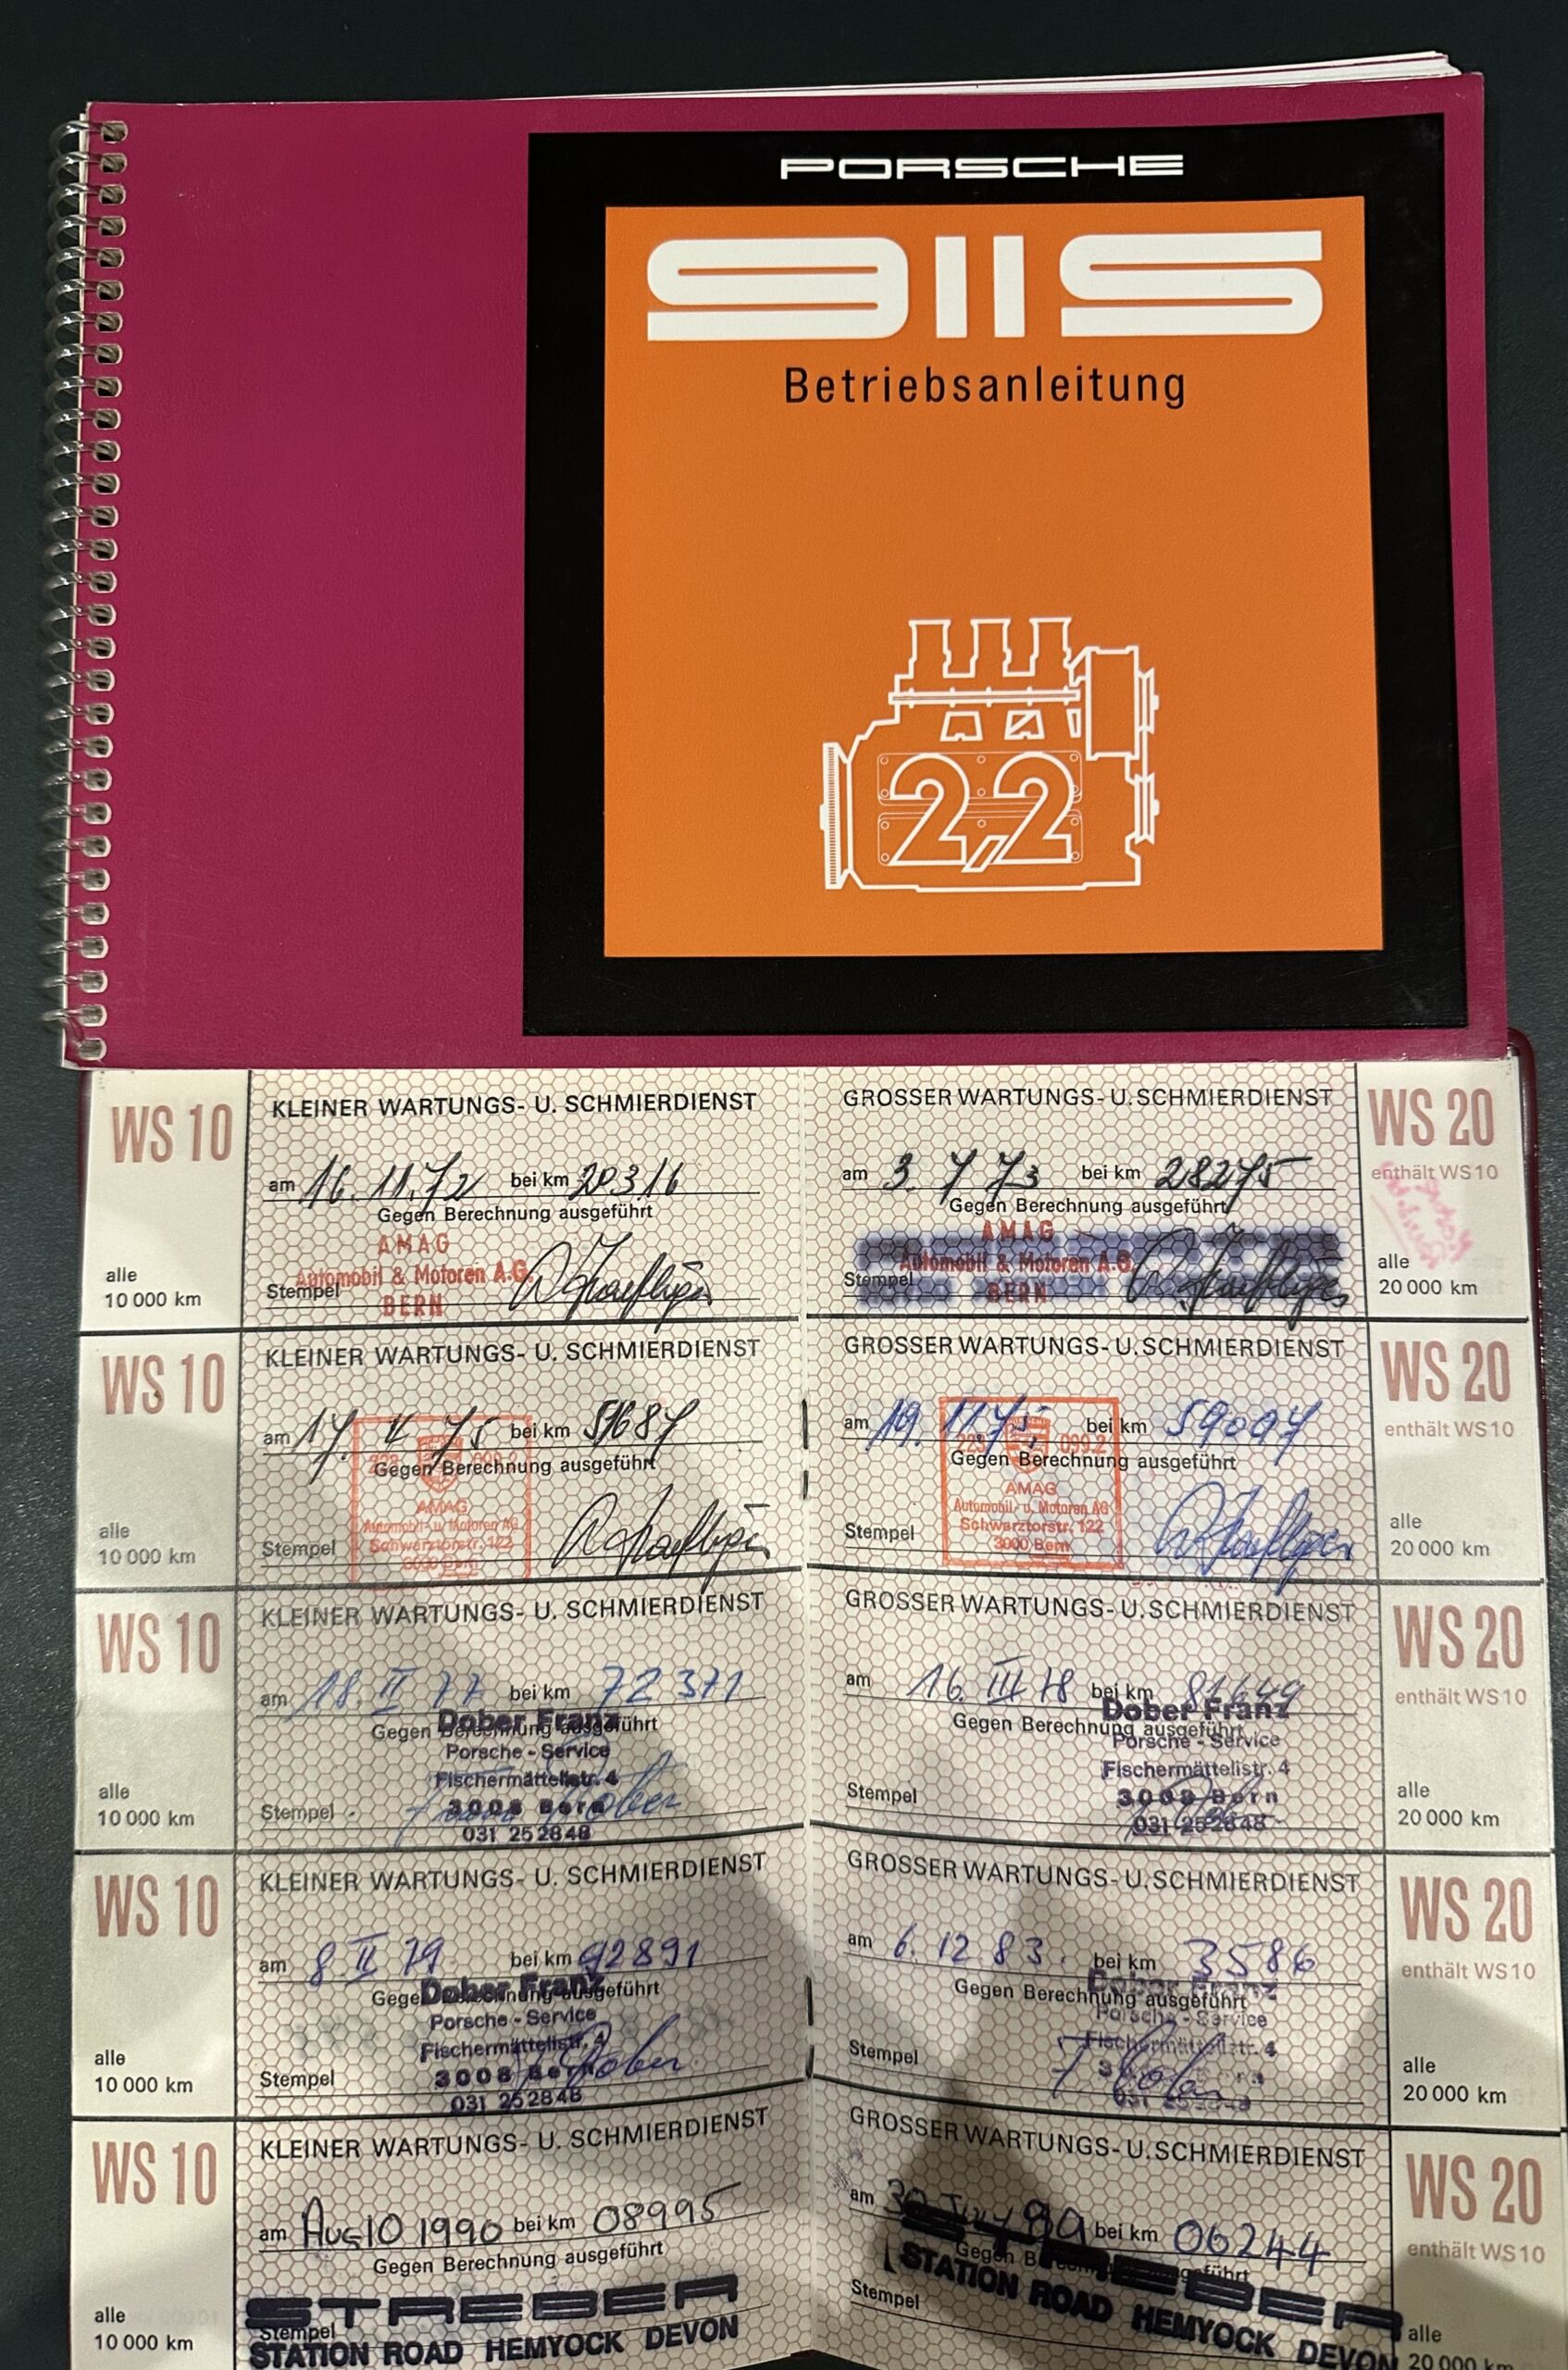 PORSCHE
911S
Betriebsanleitung
2,2
WS 10
KLEINER WARTUNGS- U. SCHMIERDIENST
am 16.11.72 bei km 20316
Gegen Berechnung ausgeführt
AMAG
Automobil & Motoren A.G.
BERN
Stempel
alle
10 000 km
GROSSER WARTUNGS- U. SCHMIERDIENST
am 3. 7 73 bei km 28275
Gegen Berechnung ausgeführt
AMAG
Automobil & Motoren A.G.
BERN
Stempel
WS 20
enthält WS10
alle
20 000 km
WS 10
KLEINER WARTUNGS- U. SCHMIERDIENST
am 17. V 75 bei km 51687
Gegen Berechnung ausgeführt
AMAG
Automobil- u. Motoren AG
Schwarztorstr. 122
3000 Bern
Stempel
alle
10 000 km
GROSSER WARTUNGS- U. SCHMIERDIENST
am 19. 11. 75. bei km 59097
Gegen Berechnung ausgeführt
AMAG
Automobil- u. Motoren AG
Schwarztorstr. 122
3000 Bern
Stempel
WS 20
enthält WS10
alle
20 000 km
WS 10
KLEINER WARTUNGS- U. SCHMIERDIENST
am 18. II 77 bei km 72 371
Gegen Berechnung ausgeführt
Dober Franz
Porsche - Service
Fischermättelistr. 4
3008 Bern
031 25 28 48
Stempel
alle
10 000 km
GROSSER WARTUNGS- U. SCHMIERDIENST
am 16. III 78 bei km 81649
Gegen Berechnung ausgeführt
Dober Franz
Porsche - Service
Fischermättelistr. 4
3008 Bern
031 25 28 48
Stempel
WS 20
enthält WS10
alle
20 000 km
WS 10
KLEINER WARTUNGS- U. SCHMIERDIENST
am 8 II 79 bei km 92891
Gegen Berechnung ausgeführt
Dober Franz
Porsche - Service
Fischermättelistr. 4
3008 Bern
031 25 28 48
Stempel
alle
10 000 km
GROSSER WARTUNGS- U. SCHMIERDIENST
am 6. 12 83. bei km 3586
Gegen Berechnung ausgeführt
Dober Franz
Porsche - Service
Fischermättelistr. 4
3008 Bern
031 25 28 48
Stempel
WS 20
enthält WS10
alle
20 000 km
WS 10
KLEINER WARTUNGS- U. SCHMIERDIENST
am Aug 10 1990 bei km 08995
Gegen Berechnung ausgeführt
STREBER
Stempel
STATION ROAD HEMYOCK DEVON
alle
10 000 km
GROSSER WARTUNGS- U. SCHMIERDIENST
am 30 July 89 bei km 06244
Gegen Berechnung ausgeführt
STREBER
STATION ROAD HEMYOCK DEVON
Stempel
WS 20
enthält WS10
alle
20 000 km